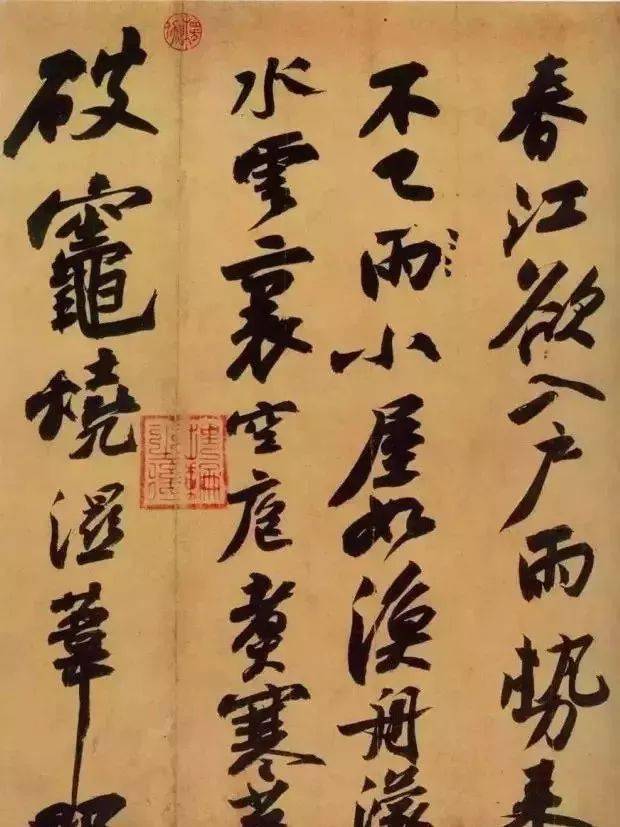 春江欲入户雨势来
不已雨小屋如渔舟濛
水雲裏空庖煮寒菜
破竈燒湿葦